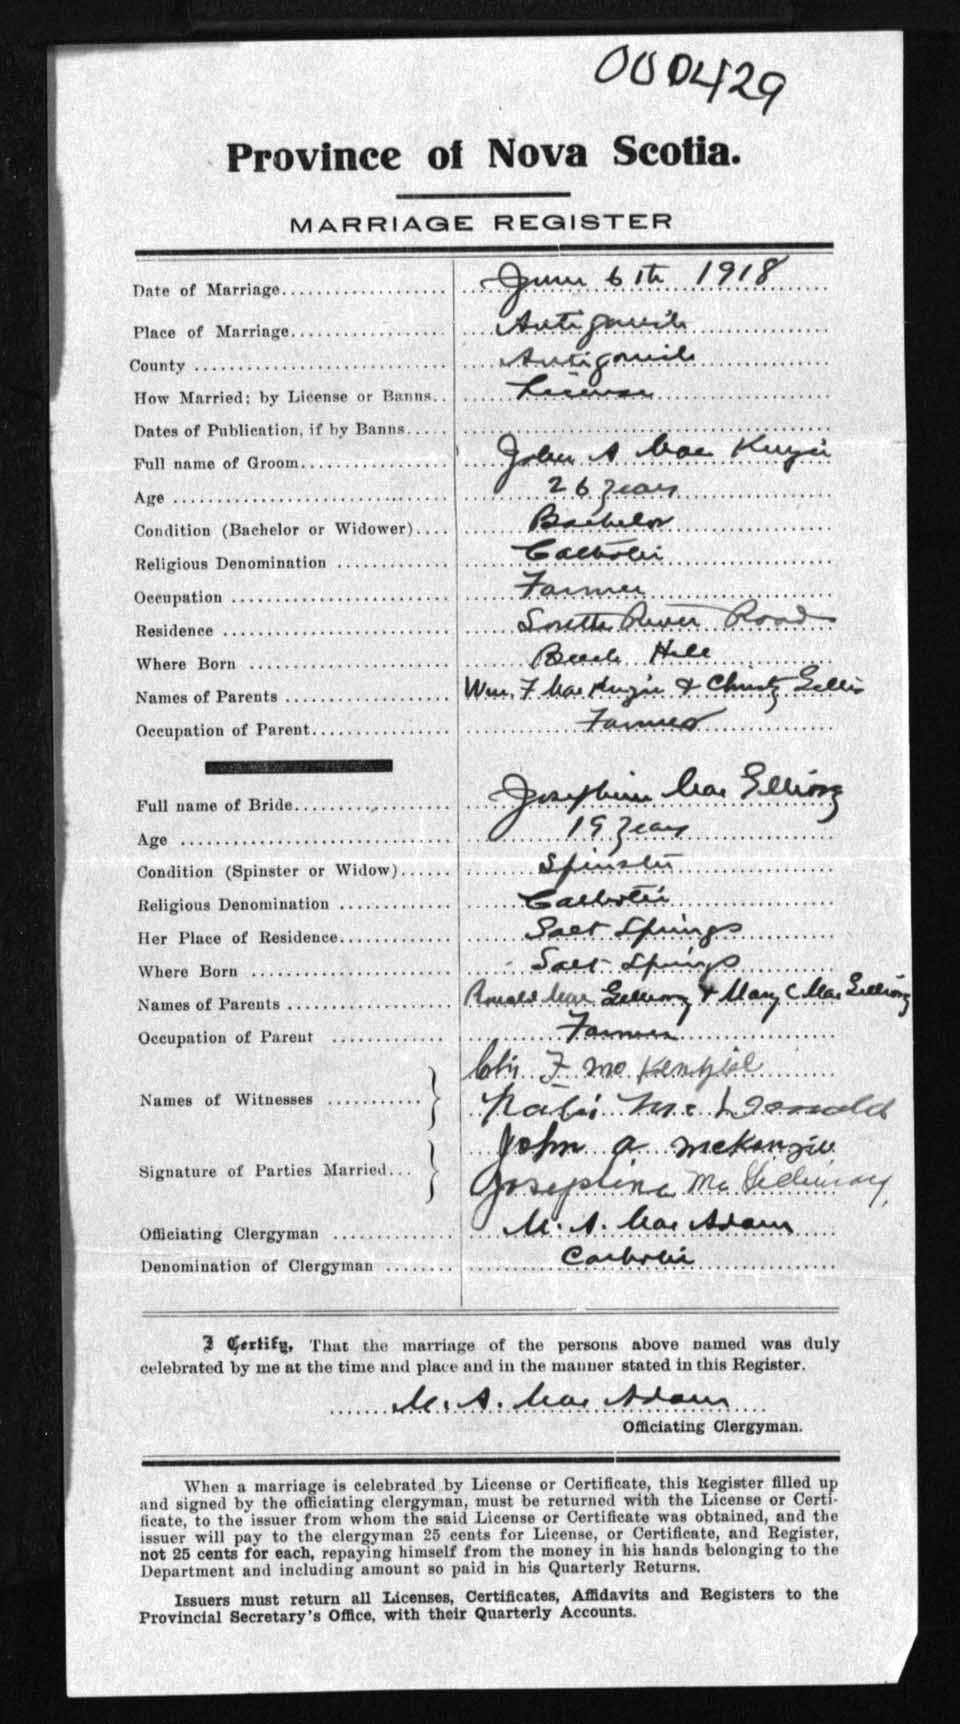 000429
Province of Nova Scotia.
MARRIAGE REGISTER
Date of Marriage.................... June 6th 1918
Place of Marriage................... Antigonish
County .............................. Antigonish
How Married; by License or Banns.. License
Dates of Publication, if by Banns.....
Full name of Groom................. John A MacKenzie
Age ................................ 26 years
Condition (Bachelor or Widower).... Bachelor
Religious Denomination ............. Catholic
Occupation ......................... Farmer
Residence .......................... South River Road
Where Born ........................ Beech Hill
Names of Parents ................... Wm. F MacKenzie & Christy Gillis
Occupation of Parent................ Farmer
Full name of Bride................... Josephine MacGillivray
Age ................................ 19 years
Condition (Spinster or Widow)...... Spinster
Religious Denomination ............ Catholic
Her Place of Residence............. Salt Springs
Where Born ........................ Salt Springs
Names of Parents ................... Ronald MacGillivray & Mary C MacGillivray
Occupation of Parent .............. Farmer
Names of Witnesses ........... F McKenzie
Mc Donald
Signature of Parties Married... John A McKenzie
Josephine McGillivray
Officiating Clergyman ............. M. A. MacAdam
Denomination of Clergyman ........ Catholic
I Certify, That the marriage of the persons above named was duly
celebrated by me at the time and place and in the manner stated in this Register.
M. A. MacAdam
Officiating Clergyman.
When a marriage is celebrated by License or Certificate, this Register filled up
and signed by the officiating clergyman, must be returned with the License or Certi-
ficate, to the issuer from whom the said License or Certificate was obtained, and the
issuer will pay to the clergyman 25 cents for License, or Certificate, and Register,
not 25 cents for each, repaying himself from the money in his hands belonging to the
Department and including amount so paid in his Quarterly Returns.
Issuers must return all Licenses, Certificates, Affidavits and Registers to the
Provincial Secretary's Office, with their Quarterly Accounts.